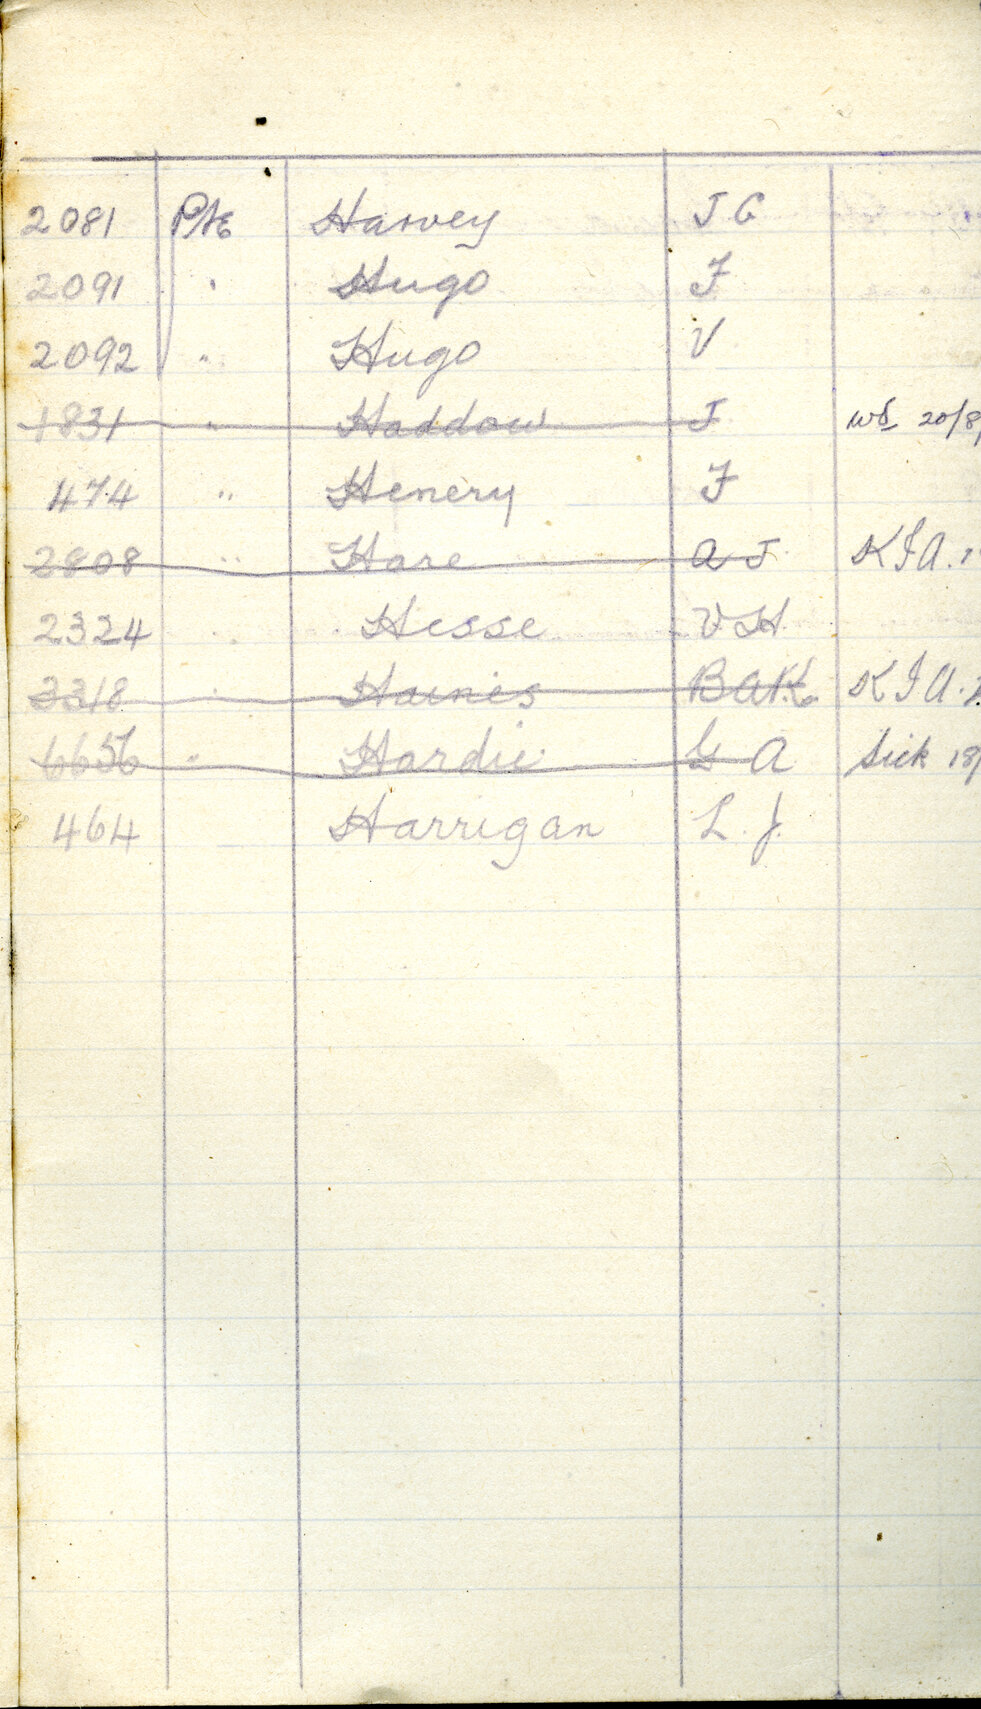 2081 Pte Harvey J C
2091 " Hugo F
2092 " Hugo V
1831 " Haddow J wd 20/8/
474 " Henery F
2808 " Hare A J KIA.
2324 " Hesse V H
3318 " Haines B A K KIA.
6656 " Hardie G A Sick 18/
464 Harrigan L. J.